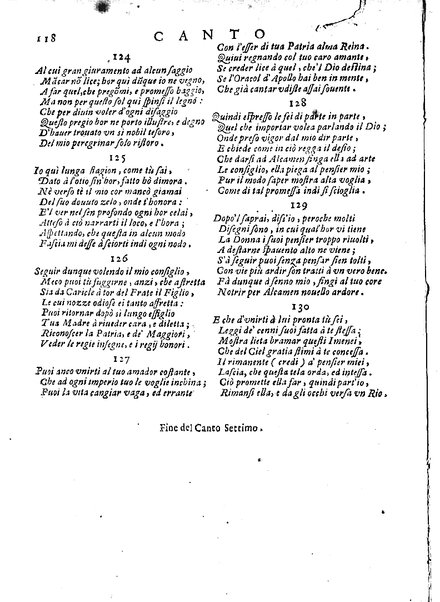 118 CANTO
124
Al cui gran giuramento ad alcun saggio
Mācar nō lice; hor qui dūque io ne vegno,
A far quel, che pregōmi, e promesso haggio,
Ma non per questo sol qui spinsi il legno:
Che per divin voler d'ogni disaggio
Questo pregio hor ne porto illustre, e degno
D'hauer trouato vn sì nobil tesoro,
Del mio peregrinar solo ristoro.
125
Io quì lunga stagion, come tù sai,
Dato à l'otio sin'hor, fatto hò dimora.
Nè verso tè il mio cor mancò giamai
Del suo douuto zelo, onde t'honora:
E'l ver nel sen profondo ogni hor celai,
Atteso à ciò narrarti il loco, e l'hora;
Aspettando, che questa in alcun modo
Fassi à mi desse à sciorti indi ogni nodo.
126
Seguir dunque volendo il mio consiglio,
Meco puoi tù fuggirne, anzi, che astretta
Sia da Caricle à tor del Frate il Figlio,
Le cui nozze odiose ei tanto affretta:
Puoi ritornar dopò sì lungo essiglio
Tua Madre à riueder cara, e diletta;
Riconoscer la Patria, e de' Maggiori,
Veder le regie insegne, e i regij honori.
127
Puoi anco vnirti al tuo amador costante,
Che ad ogni imperio tuo le voglie inchina;
Puoi la vita cangiar vaga, ed errante
Con l'esser di tua Patria alma Reina.
Quiui regnando col tuo caro amante,
Se creder lice à quel, che'l Dio destina;
Se l'Oracol d'Apollo hai ben in mente,
Che già cantar vdiste assai souente.
128
Quindi espresso le fei di parte in parte,
Quel che importar volea parlando il Dio;
Onde preso vigor dal mio dir parte,
E chiede come in ciò regga il desio;
Che darsi ad Alcamen finga ella ad arte
Le consiglio, ella piega al pensier mio;
Pur il modo saper mostra alta voglia,
Come di tal promessa indi si scioglia.
129
Dopo'l saprai, diss'io, peroche molti
Disegni sono, in cui qual hor vi tiene
La Donna i suoi pensier troppo riuolti,
A destarne spauento alto ne viene;
S'à seguir puoi senza pensar sien tolti,
Con vie più ardir son tratti à vn vero bene.
Fà dunque à senno mio, fingi al tuo core
Notrir per Alcamen nouello ardore.
130
E che d'vnirti à lui pronta tù sei,
Leggi de' cenni suoi fatta à te stessa;
Mostra lieta bramar questi Imenei,
Che del Ciel gratia stimi à te concessa.
Il rimanente (credi) a' pensier miei,
Lascia, che questa tela orda, ed intessa.
Ciò promette ella far, quindi part'io,
Rimansi ella, e da gli occhi versa vn Rio.
Fine del Canto Settimo.